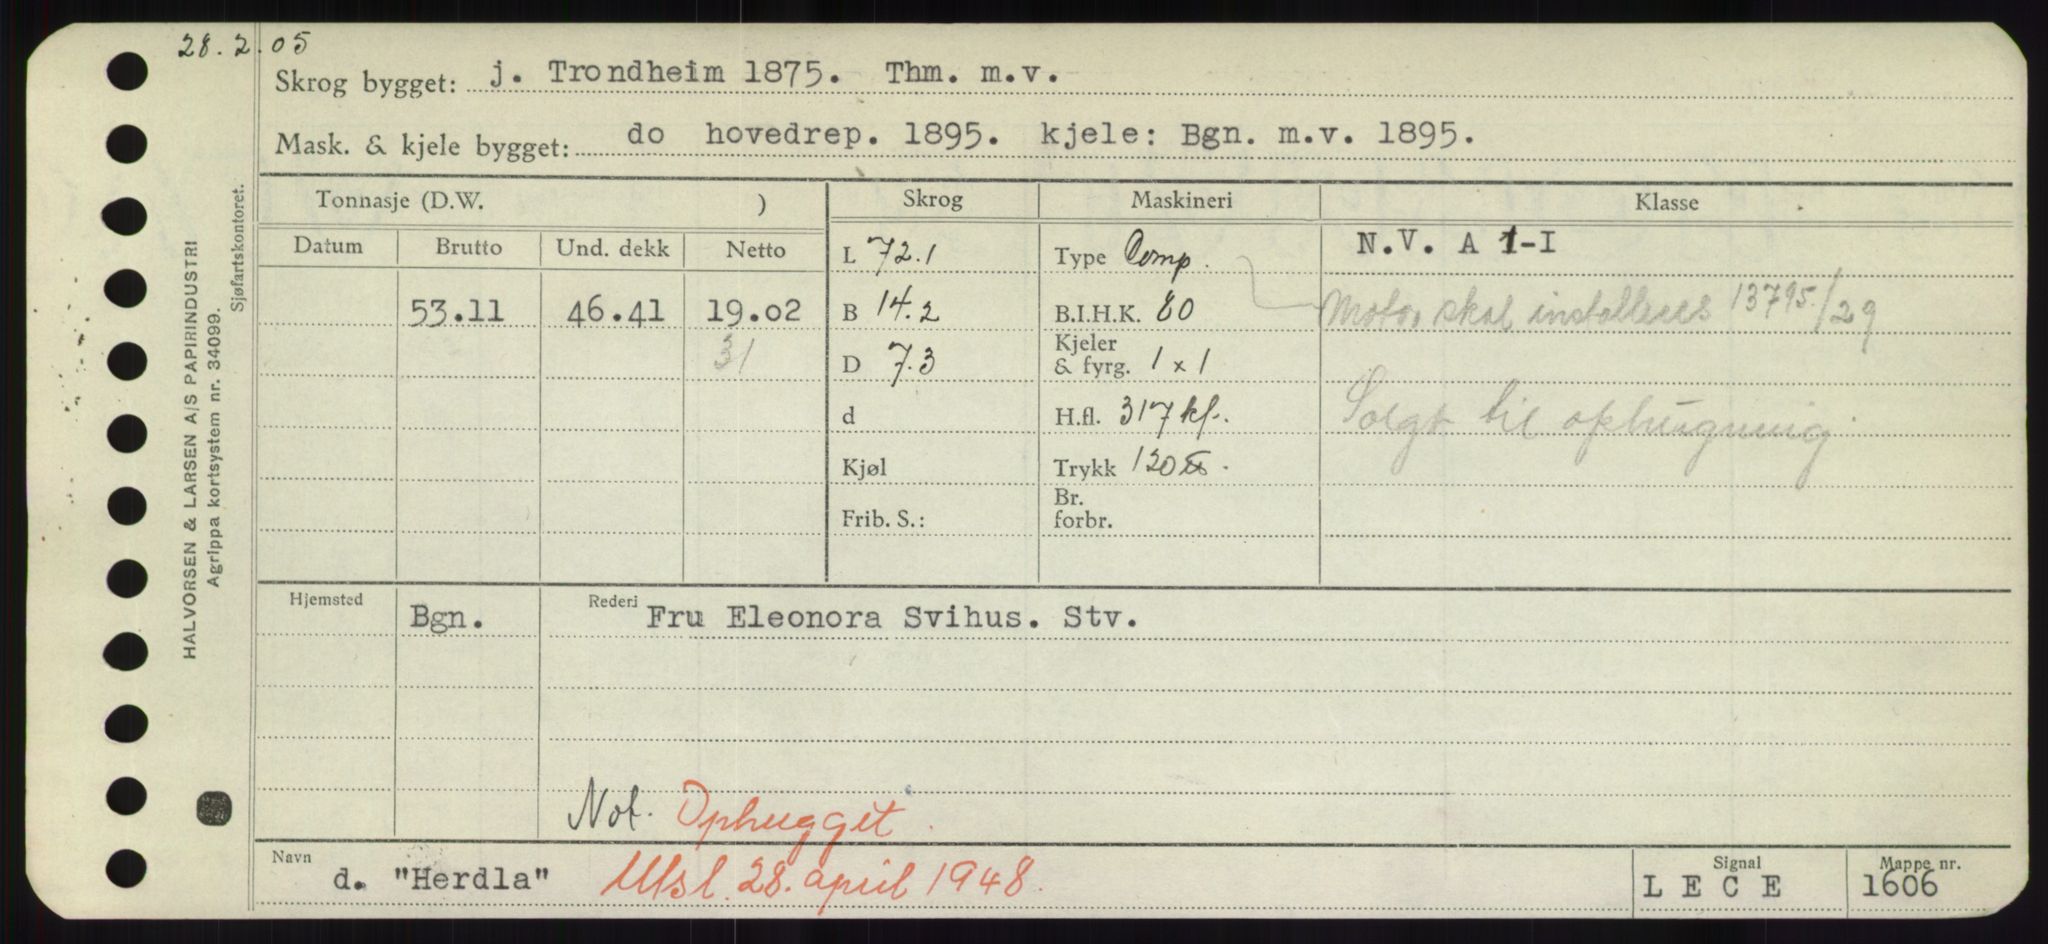 28.2.05
Skrog bygget: j. Trondheim 1875. Thm. m.v.
Mask. & kjele bygget: do hovedrep. 1895. kjele: Bgn. m.v. 1895.
Tonnasje (D.W. ) Skrog Maskineri Klasse
Datum Brutto Und. dekk Netto
L 72.1 Type Comp. N.V. A 1-I
53.11 46.41 19.02 B 14.2 B.I.H.K. 80 Motor skal installeres 13795/29
31 D 7.3 Kjeler & fyrg. 1 x 1
d H.fl. 317 kf. Solgt til ophugning.
Kjøl Trykk 120 ℔.
Frib. S.: Br. forbr.
Hjemsted Bgn. Rederi Fru Eleonora Svihus. Stv.
Not. Ophugget.
Navn d. "Herdla" Utsl. 28. april 1948. Signal LECE Mappe nr. 1606
HALVORSEN & LARSEN A/S PAPIRINDUSTRI
Agrippa kortsystem nr. 34099.
Sjøfartskontoret.